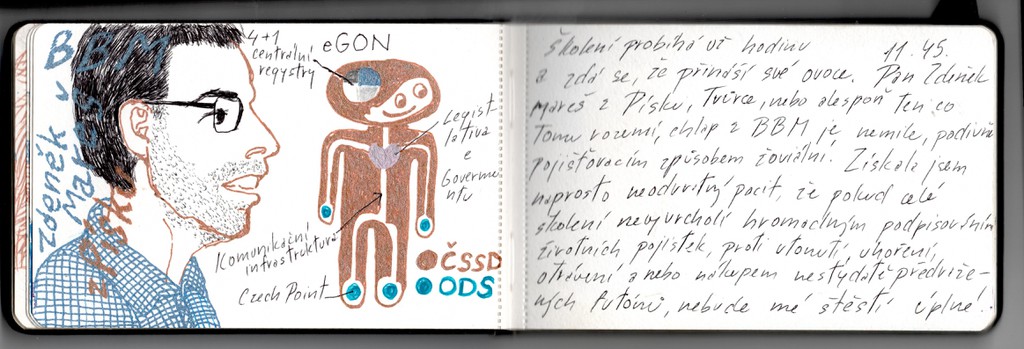 Zdeněk Mareš v BBM
z Písku
4+1
centrální
registry
eGON
Legist
lativa
e
Governme
ntu
Komunikační
infrastruktura
Czech Point
ČSSD
ODS
Školení probíhá už hodinu 11.45.
a zdá se, že přináší své ovoce. Pan Zdeněk
Mareš z Písku, Tvůrce, nebo alespoň ten co
tomu rozumí, chlap z BBM je nemile, podivně
pojišťovacím způsobem žoviální. Získala jsem
naprosto neodvratný pocit, že pokud celé
školení nevyvrcholí hromadným podpisováním
životních pojistek, proti utonutí, uhoření,
otrávení a nebo nákupem nestydatě předraže-
ných futónů, nebude mé štěstí úplné!